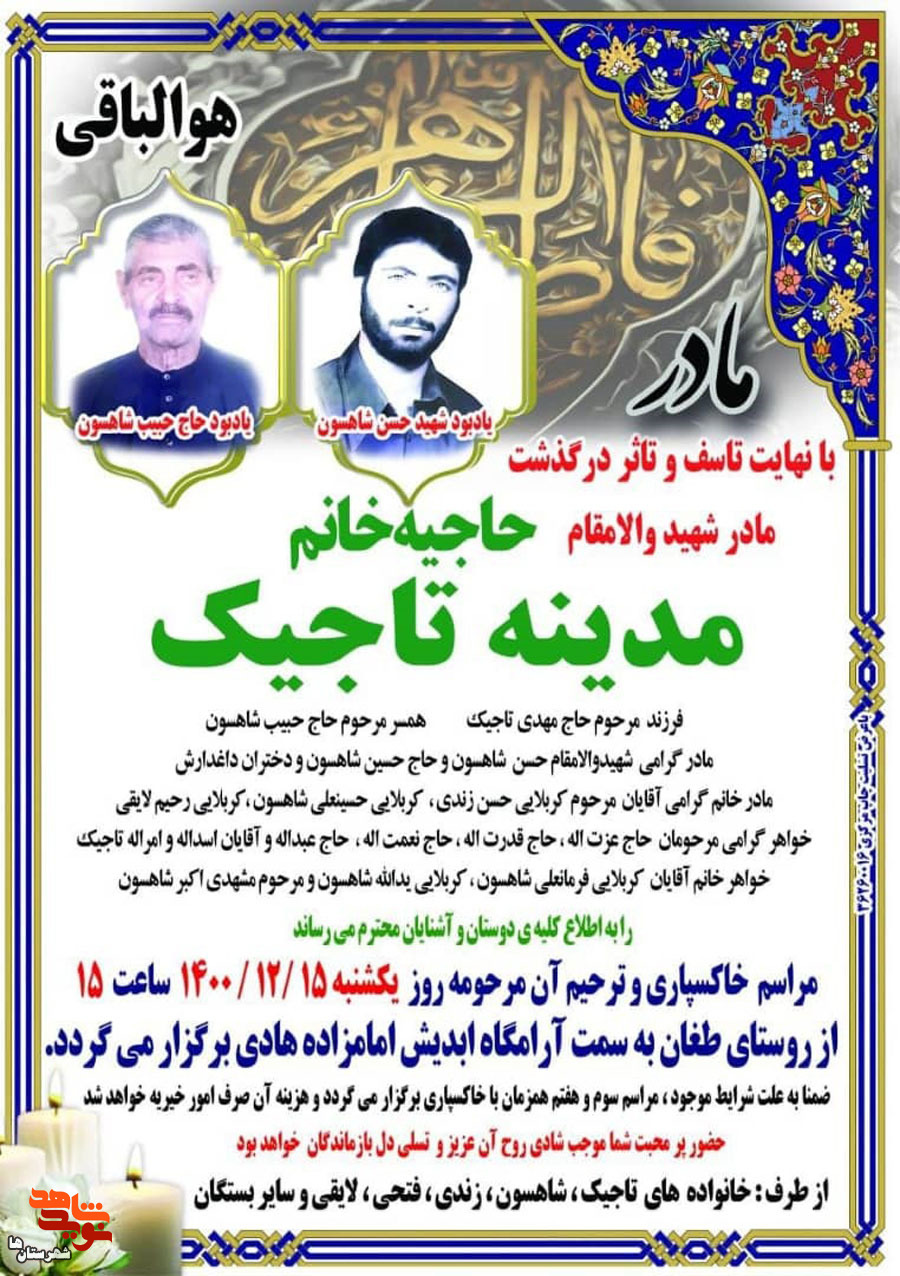 هوالباقی
فاطمة الزهرا
مادر
یادبود شهید حسن شاهسون
یادبود حاج حبیب شاهسون
با نهایت تاسف و تاثر درگذشت
مادر شهید والامقام حاجیه خانم
مدینه تاجیک
فرزند مرحوم حاج مهدی تاجیک همسر مرحوم حاج حبیب شاهسون
مادر گرامی شهیدوالامقام حسن شاهسون و حاج حسین شاهسون و دختران داغدارش
مادر خانم گرامی آقایان مرحوم کربلایی حسن زندی، کربلایی حسینعلی شاهسون، کربلایی رحیم لایقی
خواهر گرامی مرحومان حاج عزت اله، حاج قدرت اله، حاج نعمت اله، حاج عبداله و آقایان اسداله و امراله تاجیک
خواهر خانم آقایان کربلایی فرمانعلی شاهسون، کربلایی یدالله شاهسون و مرحوم مشهدی اکبر شاهسون
را به اطلاع کلیه ی دوستان و آشنایان محترم می رساند
مراسم خاکسپاری و ترحیم آن مرحومه روز یکشنبه ۱۵ /۱۲ / ۱۴۰۰ ساعت ۱۵
از روستای طغان به سمت آرامگاه ابدیش امامزاده هادی برگزار می گردد.
ضمنا به علت شرایط موجود، مراسم سوم و هفتم همزمان با خاکسپاری برگزار می گردد و هزینه آن صرف امور خیریه خواهد شد
حضور پر محبت شما موجب شادی روح آن عزیز و تسلی دل بازماندگان خواهد بود
از طرف: خانواده های تاجیک، شاهسون، زندی، فتحی، لایقی و سایر بستگان
با عرض تسلیت چاپ مرکزی ۳۶۲۶۰۰۱۶
نوید شاهد
شهرستان‌ها